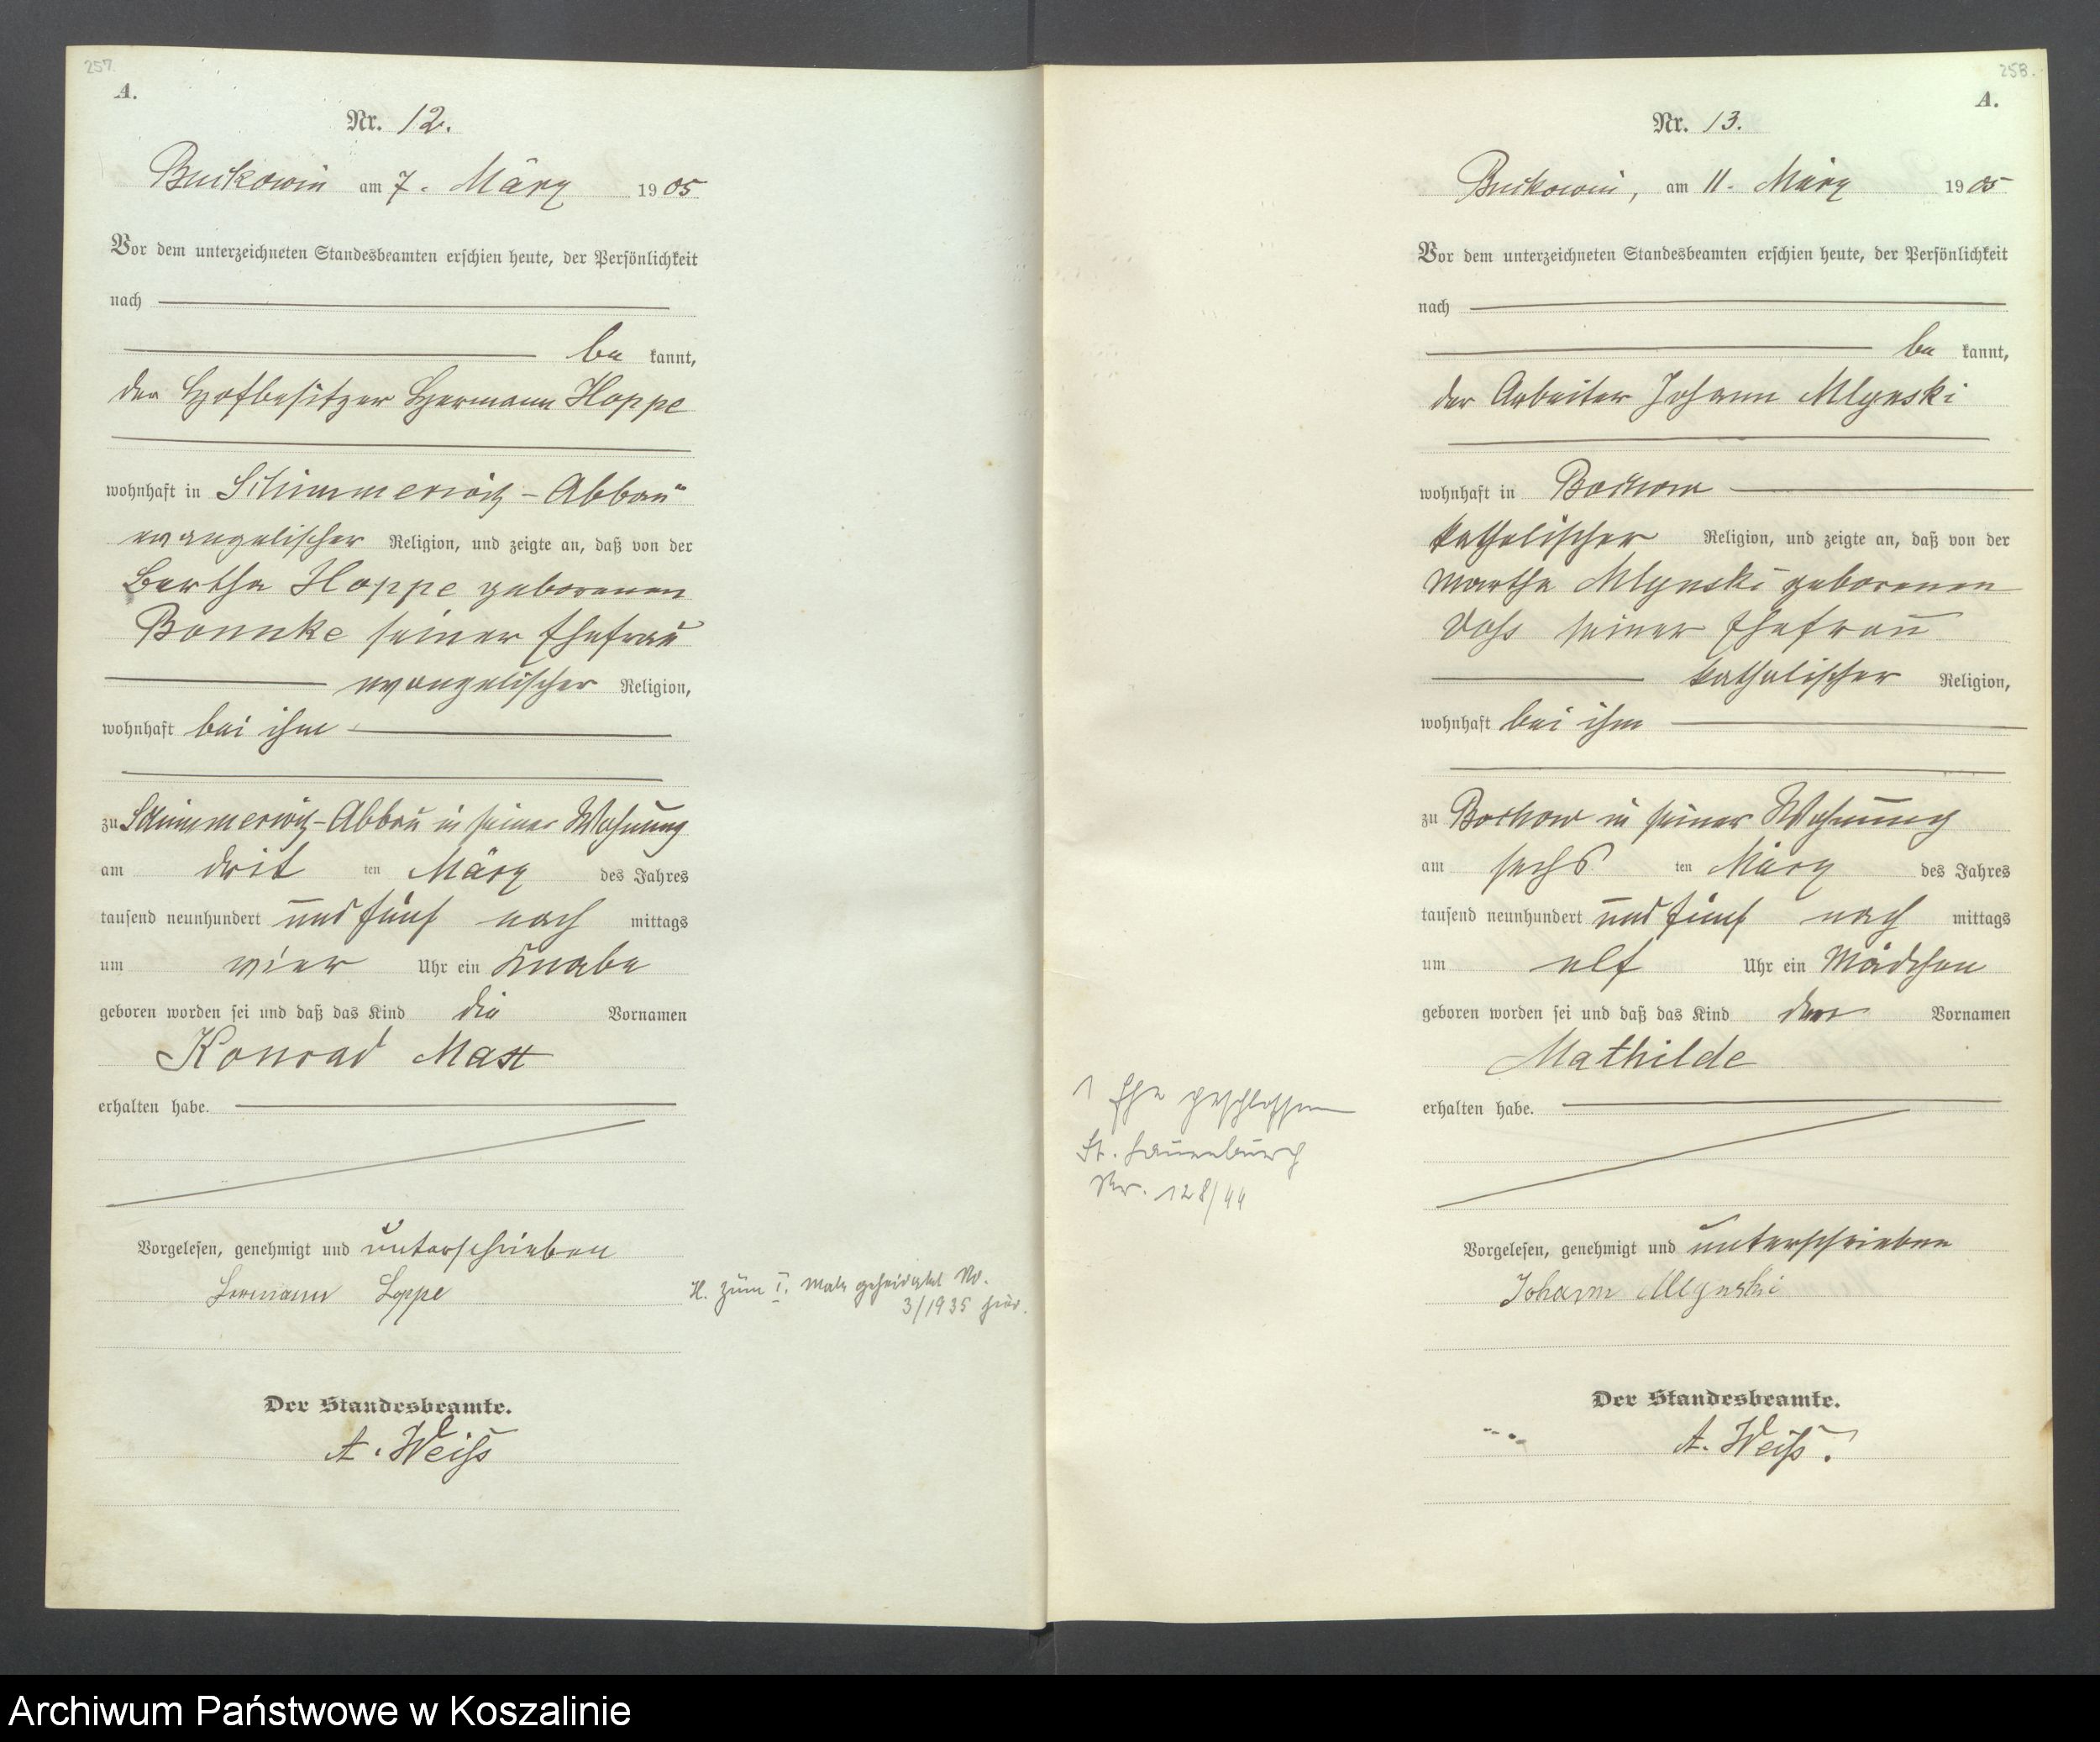 257.
A.
Nr. 12.
Buckowin am 7. März 1905
Vor dem unterzeichneten Standesbeamten erschien heute, der Persönlichkeit
nach
be kannt,
der Hofbesitzer Hermann Hoppe
wohnhaft in Schimmerwitz-Abbau
evangelischer Religion, und zeigte an, daß von der
Bertha Hoppe geborenen
Bonnke seiner Ehefrau
evangelischer Religion,
wohnhaft bei ihm
zu Schimmerwitz-Abbau in seiner Wohnung
am drit ten März des Jahres
tausend neunhundert und fünf nach mittags
um vier Uhr ein Knabe
geboren worden sei und daß das Kind die Vornamen
Konrad Max
erhalten habe.
Vorgelesen, genehmigt und unterschrieben
Hermann Hoppe
H. zum I. Male geheiratet No.
3/1935 hier.
Der Standesbeamte.
A. Weiß
258.
A.
Nr. 13.
Buckowin, am 11. März 1905
Vor dem unterzeichneten Standesbeamten erschien heute, der Persönlichkeit
nach
be kannt,
der Arbeiter Johann Mlynski
wohnhaft in Bochow
katholischer Religion, und zeigte an, daß von der
Martha Mlynski geborenen
Voss seiner Ehefrau
katholischer Religion,
wohnhaft bei ihm
zu Bochow in seiner Wohnung
am sechs ten März des Jahres
tausend neunhundert und fünf nach mittags
um elf Uhr ein Mädchen
geboren worden sei und daß das Kind den Vornamen
Mathilde
erhalten habe.
1 Ehe geschlossen
St. Lauenburg
Nr. 128/44
Vorgelesen, genehmigt und unterschrieben
Johann Mlynski
Der Standesbeamte.
A. Weiß.
Archiwum Państwowe w Koszalinie